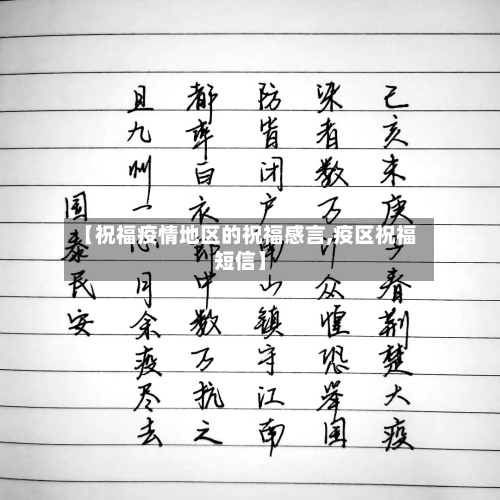 己亥末庚子春荆楚大疫
染者数万计众惶恐举国
防皆闭户南山镇守江南
都率白衣郎中数万抗之
且九州一心月余疫尽去
国泰民安
【祝福疫情地区的祝福感言,疫区祝福
短信】